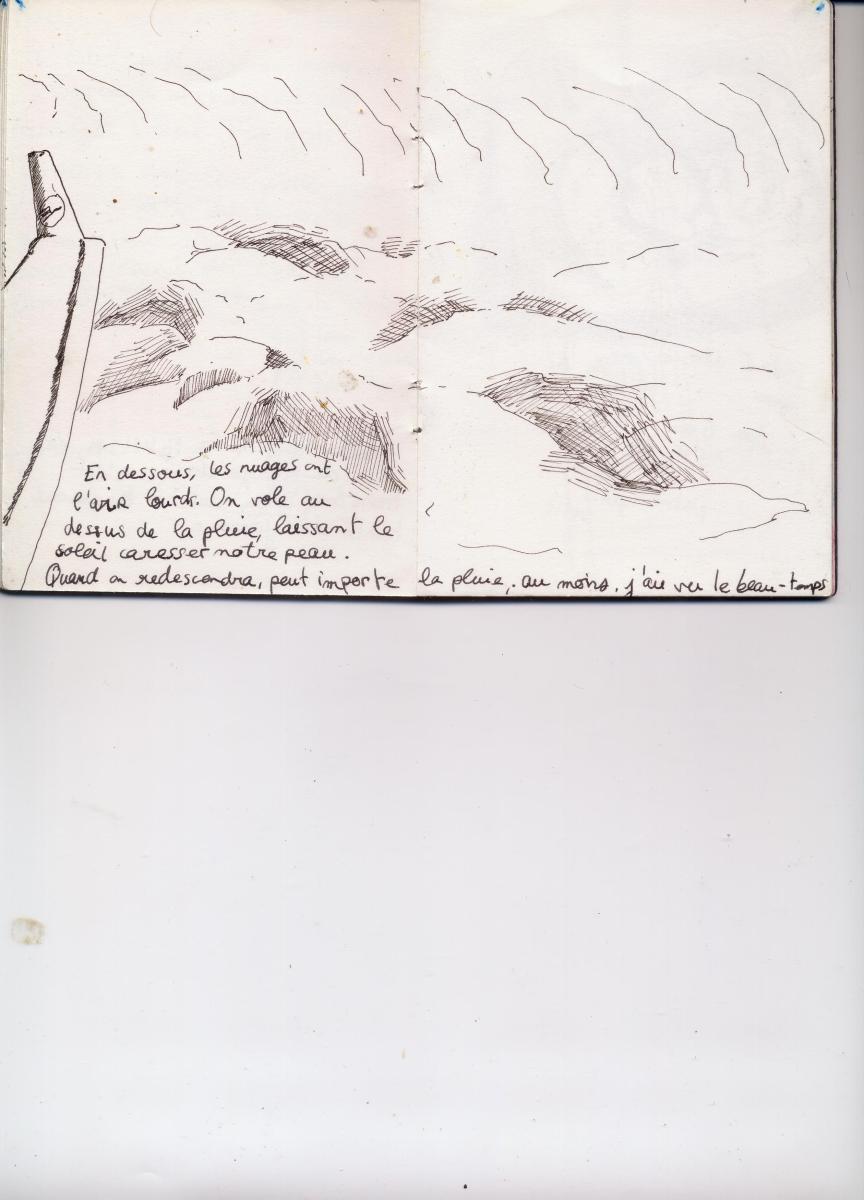 En dessous, les nuages ont
l'air lourds. On vole au
dessus de la pluie, laissant le
soleil caresser notre peau.
Quand on redescendra, peut importe la pluie, au moins, j'ai vu le beau-temps